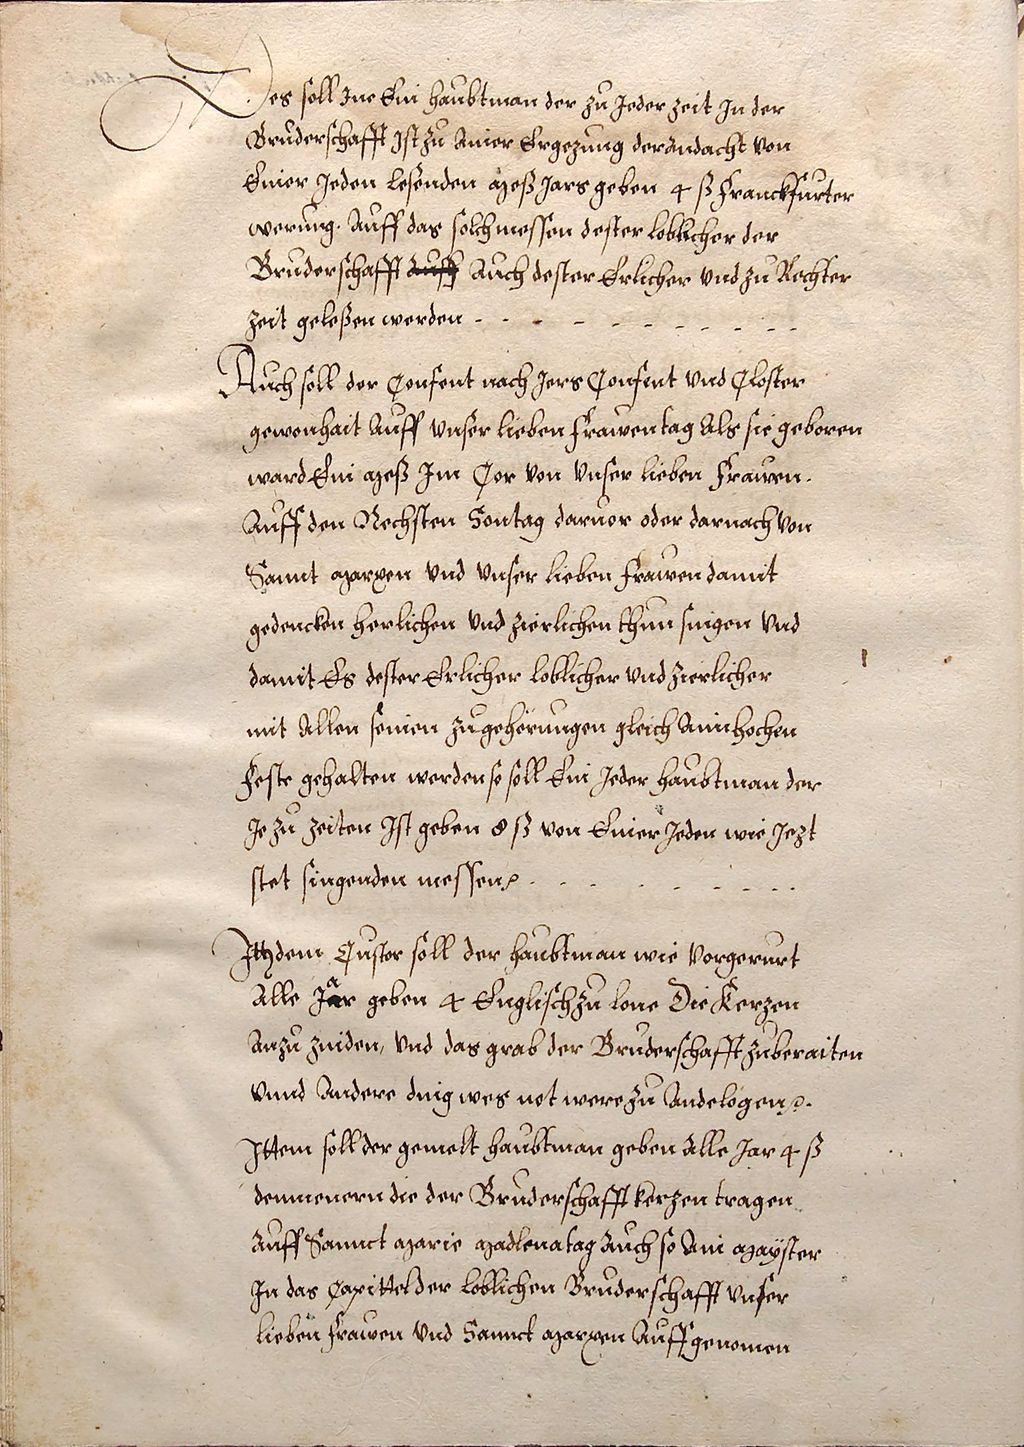 Des soll Ine Ein haubtman der zu Jeder zeit In der
Bruderschafft Ist zu Ainer Ergezung der Andacht von
Einer Jeden lesenden meß Jars geben 4 ß Franckfurter
werung. Auff das solch messen dester loblicher der
Bruderschafft Auch dester Erlicher vnd zu Rechter
zeit geleßen werden - - - - - - - - - -
Auch soll der Confent nach Jers Confent vnd Closter
gewonhait Auff vnser lieben frawen tag Als sie geboren
ward Ein meß Im Cor von vnser lieben Frawen.
Auff den Nechsten Sontag daruor oder darnach von
Sannt marxen vnd vnser lieben frawen damit
gedencken herlichen vnd zierlichen thun singen vnd
damit Es dester Erlicher loblicher vnd zierlicher
mit Allen seinen zugehörungen gleich Aim hochen
Feste gehalten werden so soll Ein Jeder haubtman der
Je zu zeiten Ist geben 8 ß von Einer Jeden wie Jezt
stet singenden messen - - - - - - - -
Itt dem Custor soll der haubtman wie vorgerurt
Alle Jar geben 4 Englisch zu lone Die Kerzen
Anzu zinden, vnd das grab der Bruderschafft zuberaiten
vnnd Andere ding wes not were zu Andelogen.
Ittem soll der gemelt haubtman geben Alle Jar 4 ß
den menern die der Bruderschafft kerzen tragen
Auff Sannct marie madlena tag Auch so Ain mayster
In das Capittel der loblichen Bruderschafft vnser
lieben frawen vnd Sannct marxen Auffgenomen